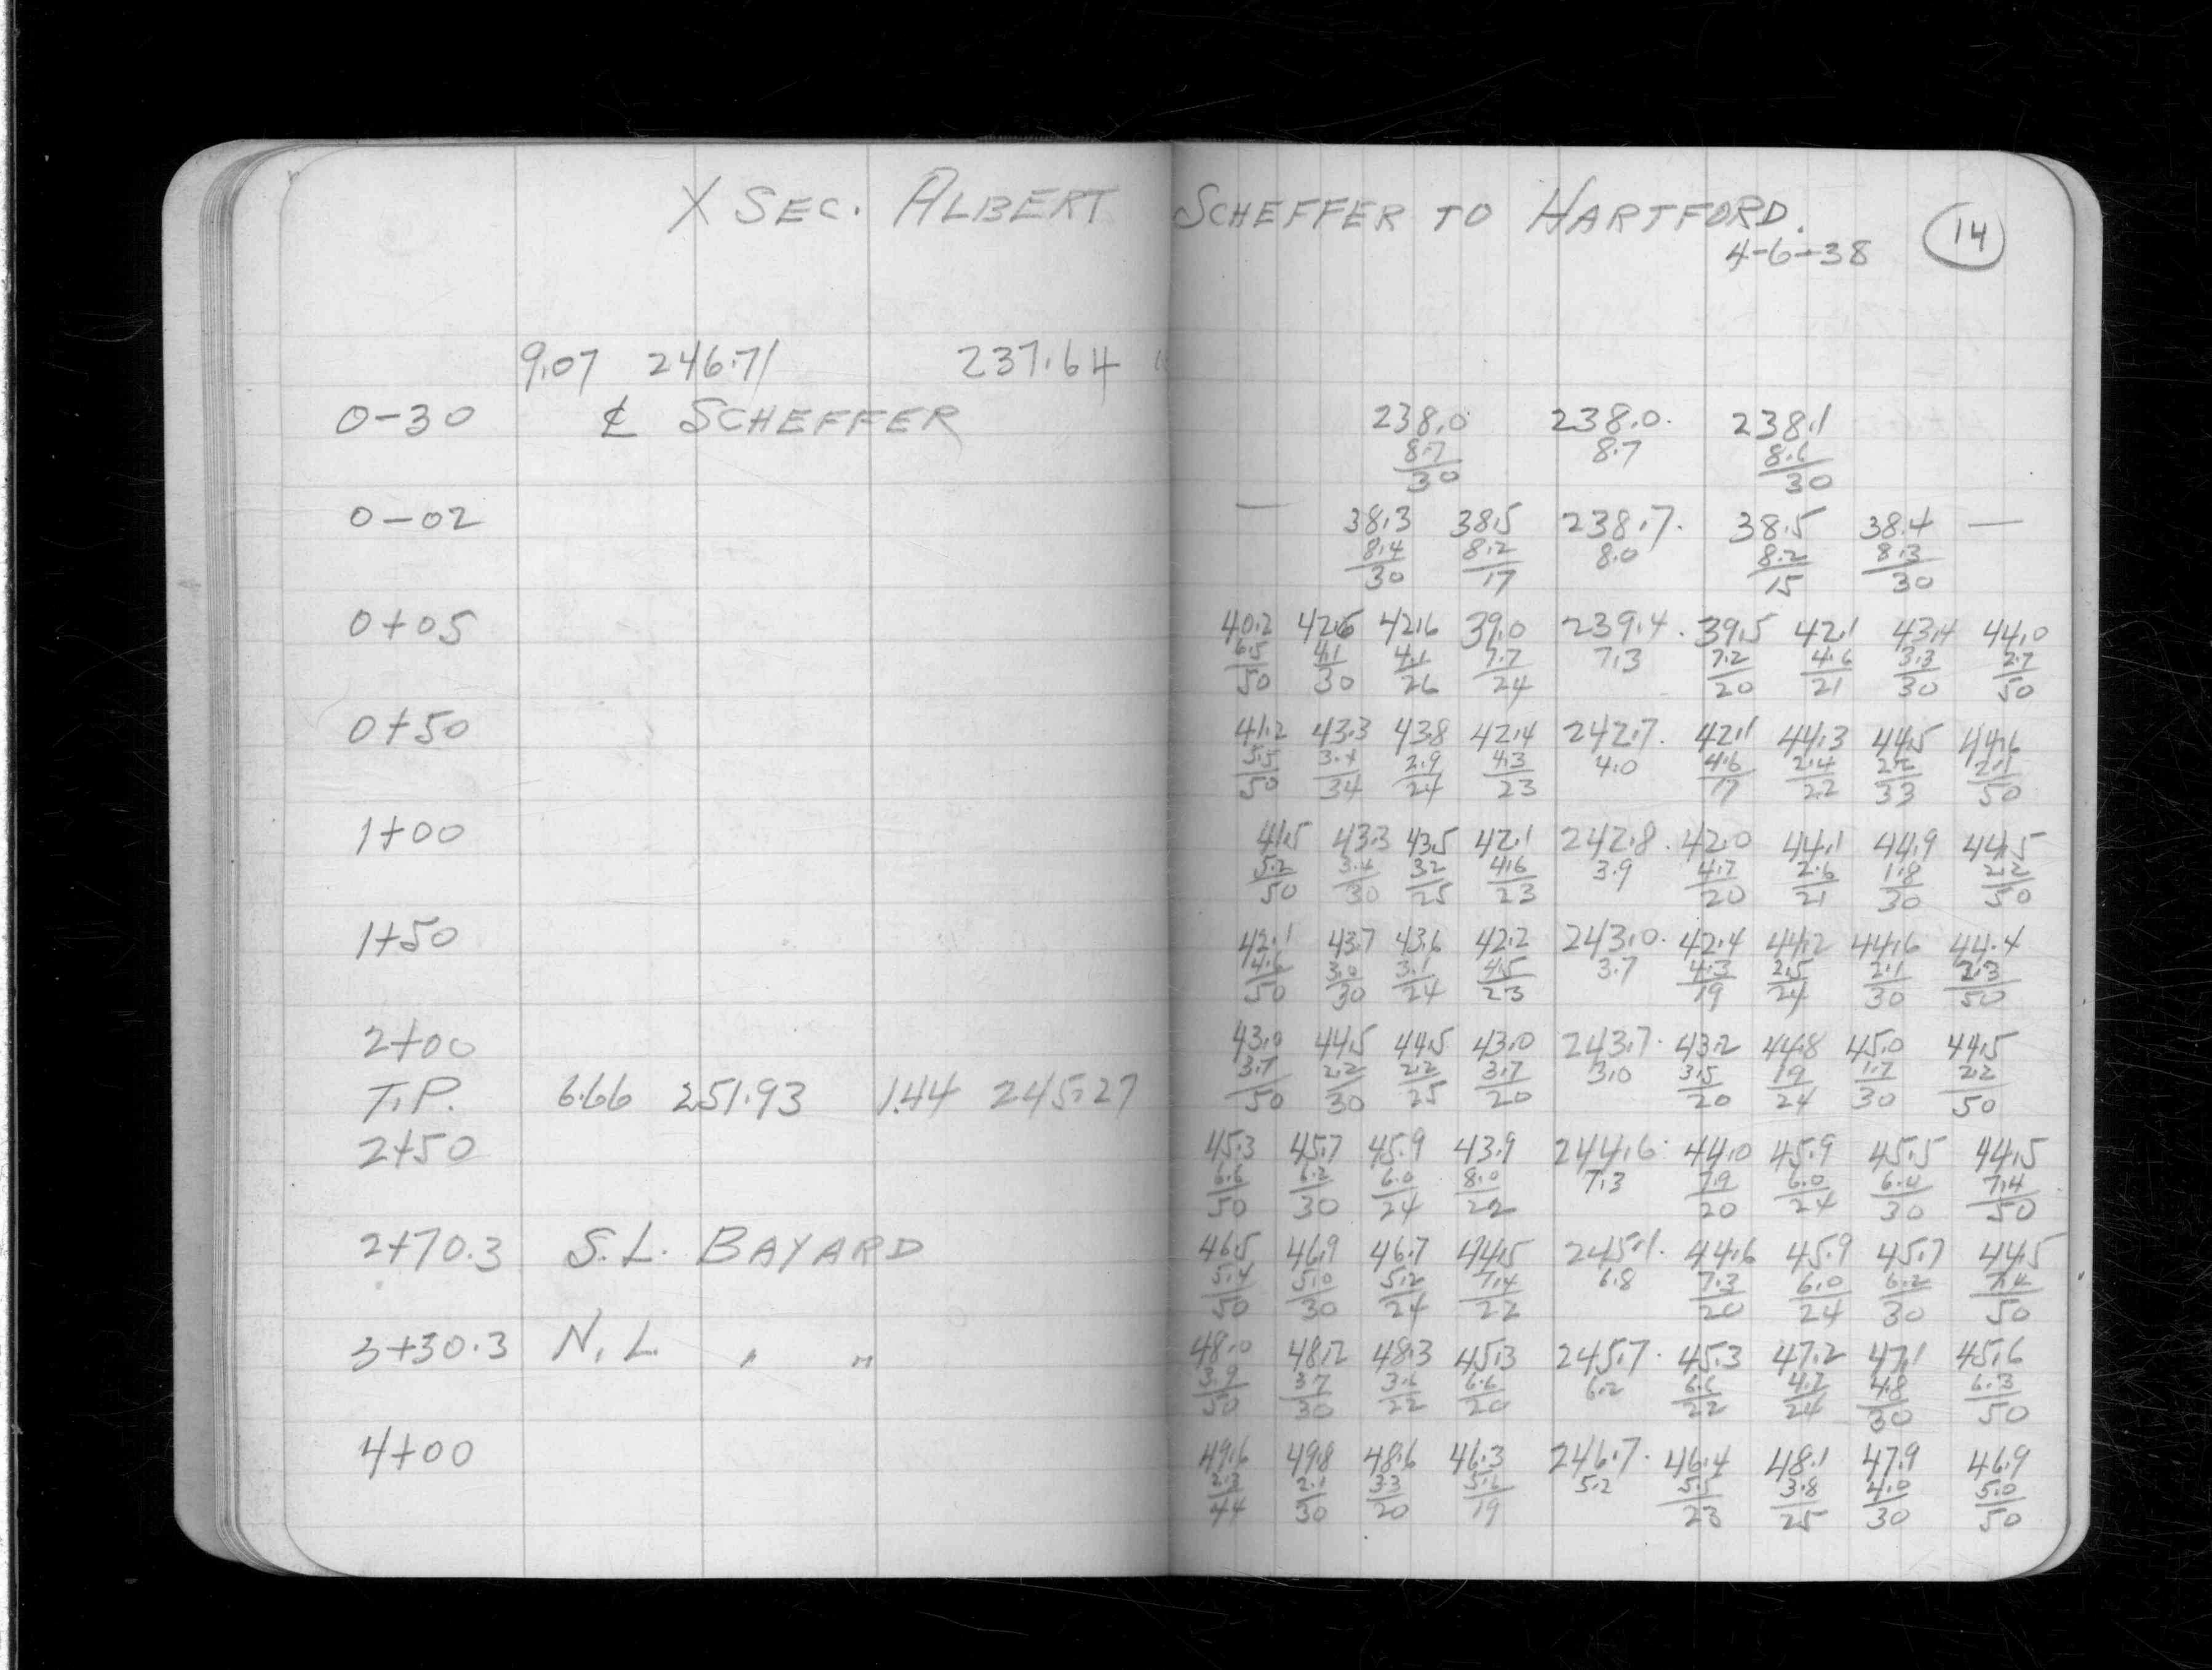 X SEC. ALBERT SCHEFFER TO HARTFORD.
4-6-38 14
9.07 246.71 237.64
0-30 ℄ SCHEFFER 238.0 238.0. 238.1
8.7 8.7 8.6
30 30
0-02 — 38.3 38.5 238.7. 38.5 38.4 —
8.4 8.2 8.0 8.2 8.3
30 17 15 30
0+05 40.2 42.6 42.6 39.0 239.4. 39.5 42.1 43.4 44.0
6.5 4.1 4.1 7.7 7.3 7.2 4.6 3.3 2.7
50 30 26 24 20 21 30 50
0+50 41.2 43.3 43.8 42.4 242.7. 42.1 44.3 44.5 44.6
5.5 3.4 2.9 4.3 4.0 4.6 2.4 2.2 2.1
50 34 24 23 17 22 33 50
1+00 41.5 43.3 43.5 42.1 242.8. 42.0 44.1 44.9 44.5
5.2 3.4 3.2 4.6 3.9 4.7 2.6 1.8 2.2
50 30 25 23 20 21 30 50
1+50 42.1 43.7 43.6 42.2 243.0. 42.4 44.2 44.6 44.4
4.6 3.0 3.1 4.5 3.7 4.3 2.5 2.1 2.3
50 30 24 23 19 24 30 50
2+00 43.0 44.5 44.5 43.0 243.7. 43.2 44.8 45.0 44.5
3.7 2.2 2.2 3.7 3.0 3.5 1.9 1.7 2.2
T.P. 6.66 251.93 1.44 245.27 50 30 25 20 20 24 30 50
2+50 45.3 45.7 45.9 43.9 244.6. 44.0 45.9 45.5 44.5
6.6 6.2 6.0 8.0 7.3 7.9 6.0 6.4 7.4
50 30 24 22 20 24 30 50
2+70.3 S.L. BAYARD 46.5 46.9 46.7 44.5 245.1. 44.6 45.9 45.7 44.5
5.4 5.0 5.2 7.4 6.8 7.3 6.0 6.2 7.4
50 30 24 22 20 24 30 50
3+30.3 N.L. " " 48.0 48.2 48.3 45.3 245.7. 45.3 47.2 47.1 45.6
3.9 3.7 3.6 6.6 6.2 6.6 4.7 4.8 6.3
50 30 22 20 22 24 30 50
4+00 49.6 49.8 48.6 46.3 246.7. 46.4 48.1 47.9 46.9
2.3 2.1 3.3 5.6 5.2 5.5 3.8 4.0 5.0
44 30 20 19 23 25 30 50